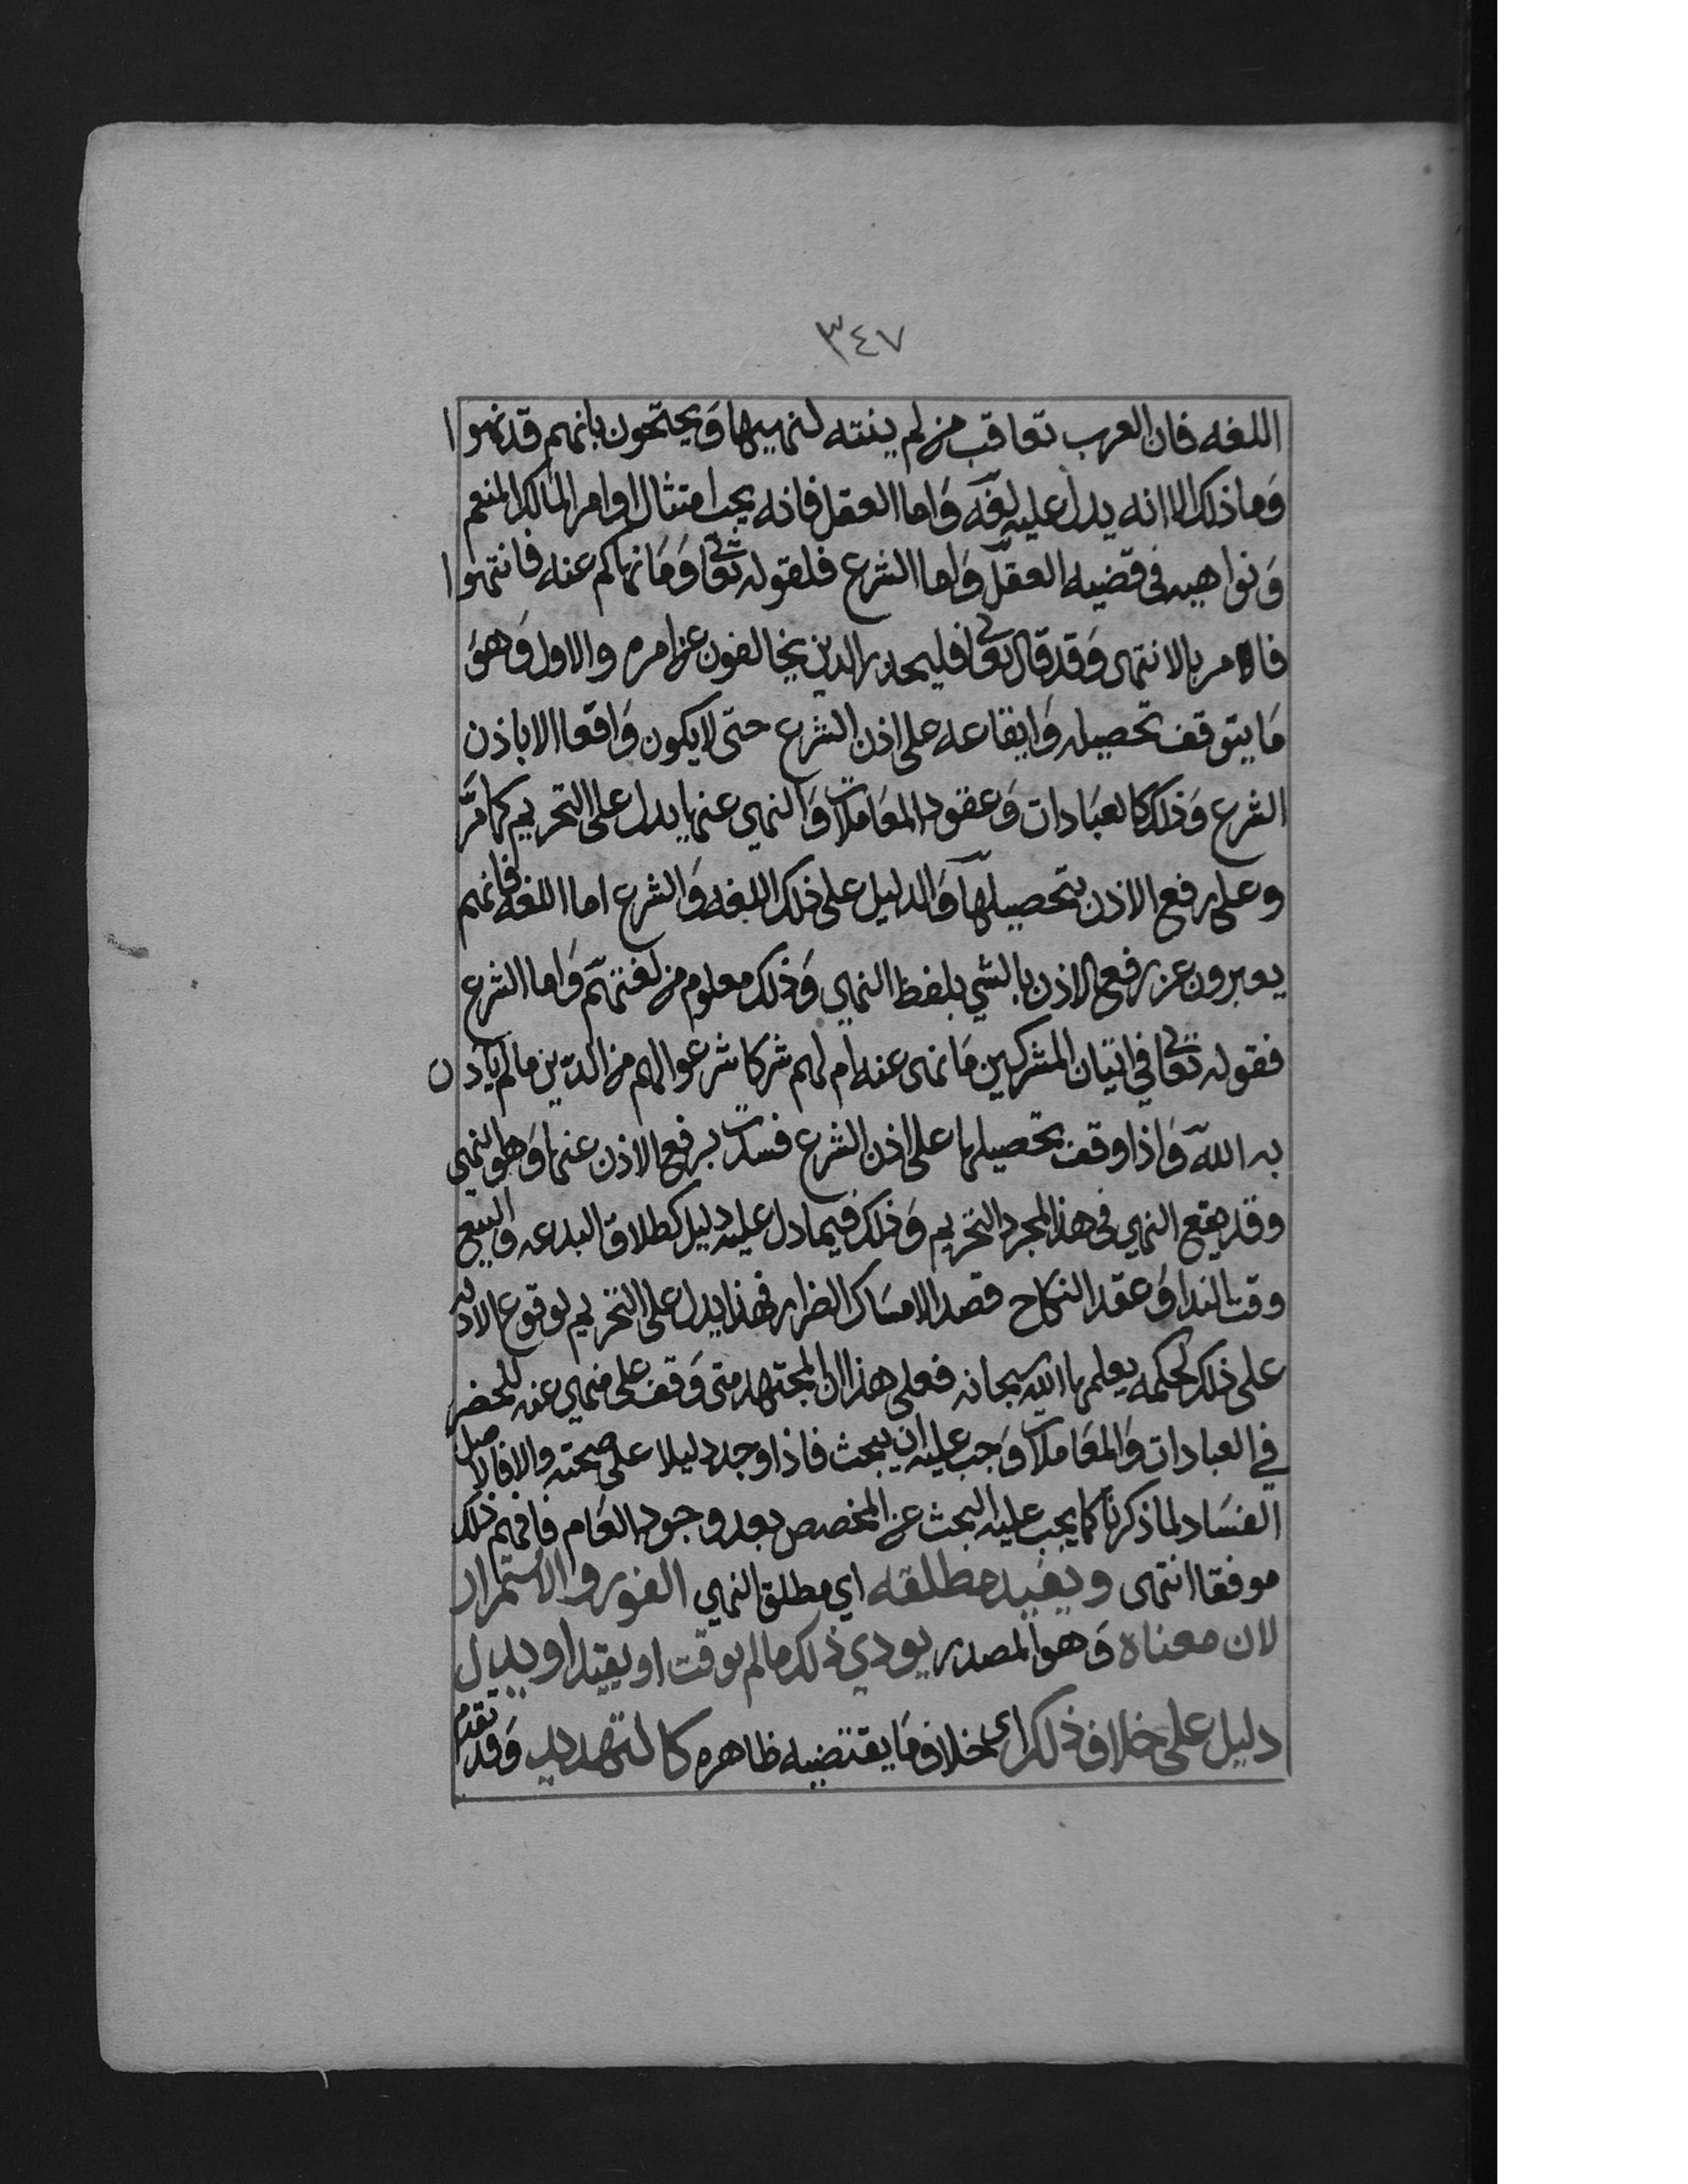 ٣٤٧
اللغه فان العرب تعاقب من لم ينته لنهييها ويحتجون بانهم قد نهوا
وما ذلك الا انه يدل عليه لغه واما العقل فانه يجب امتثال اوامر المالك المنعم
ونواهيه في قضيه العقل واما الشرع فلقوله تعالى وما نهاكم عنه فانتهوا
فالامر بالانتهى وقد قال تعالى فليحذر الذين يخالفون عن امره والاول وهو
ما يتوقف تحصيله وايقاعه على اذن الشرع حتى لا يكون واقعا الا باذن
الشرع وذلك كالعبادات وعقود المعاملات والنهي عنها يدل على التحريم كما مر
وعلى رفع الاذن بتحصيلها والدليل على ذلك اللغه والشرع اما اللغه فانهم
يعبرون عن رفع الاذن بالشي بلفظ النهي وذلك معلوم من لغتهم واما الشرع
فقوله تعالى في اتيان المشركين ما نهى عنه ام لهم شركا شرعوا لهم من الدين ما لم ياذن
به الله واذا وقف تحصيلها على اذن الشرع فسدت برفع الاذن عنها وهو النهي
وقد يقع النهي في هذا لمجرد التحريم وذلك فيما دل عليه دليل كطلاق البدعه والبيع
وقت الندا وعقد النكاح قصد الامساك الضرار فهذا يدل على التحريم لوقوع الادله
على ذلك لحكمه يعلمها الله سبحانه فعلى هذا ان المجتهد متى وقف على منهي عنه للحضر
في العبادات والمعاملات وجب عليه ان يبحث فاذا وجد دليلا على صحته والا فالاصل
الفساد لما ذكرنا كما يجب عليه البحث عن المخصص بعد وجود العام فافهم ذلك
موفقا انتهى ويفيد مطلقه اي مطلق النهي الفور والاستمرار
لان معناه وهو المصدر يودي ذلك ما لم يوقت او يقيد او يدل
دليل على خلاف ذلك اي خلاف ما يقتضيه ظاهره كالتهديد وقد تقدم